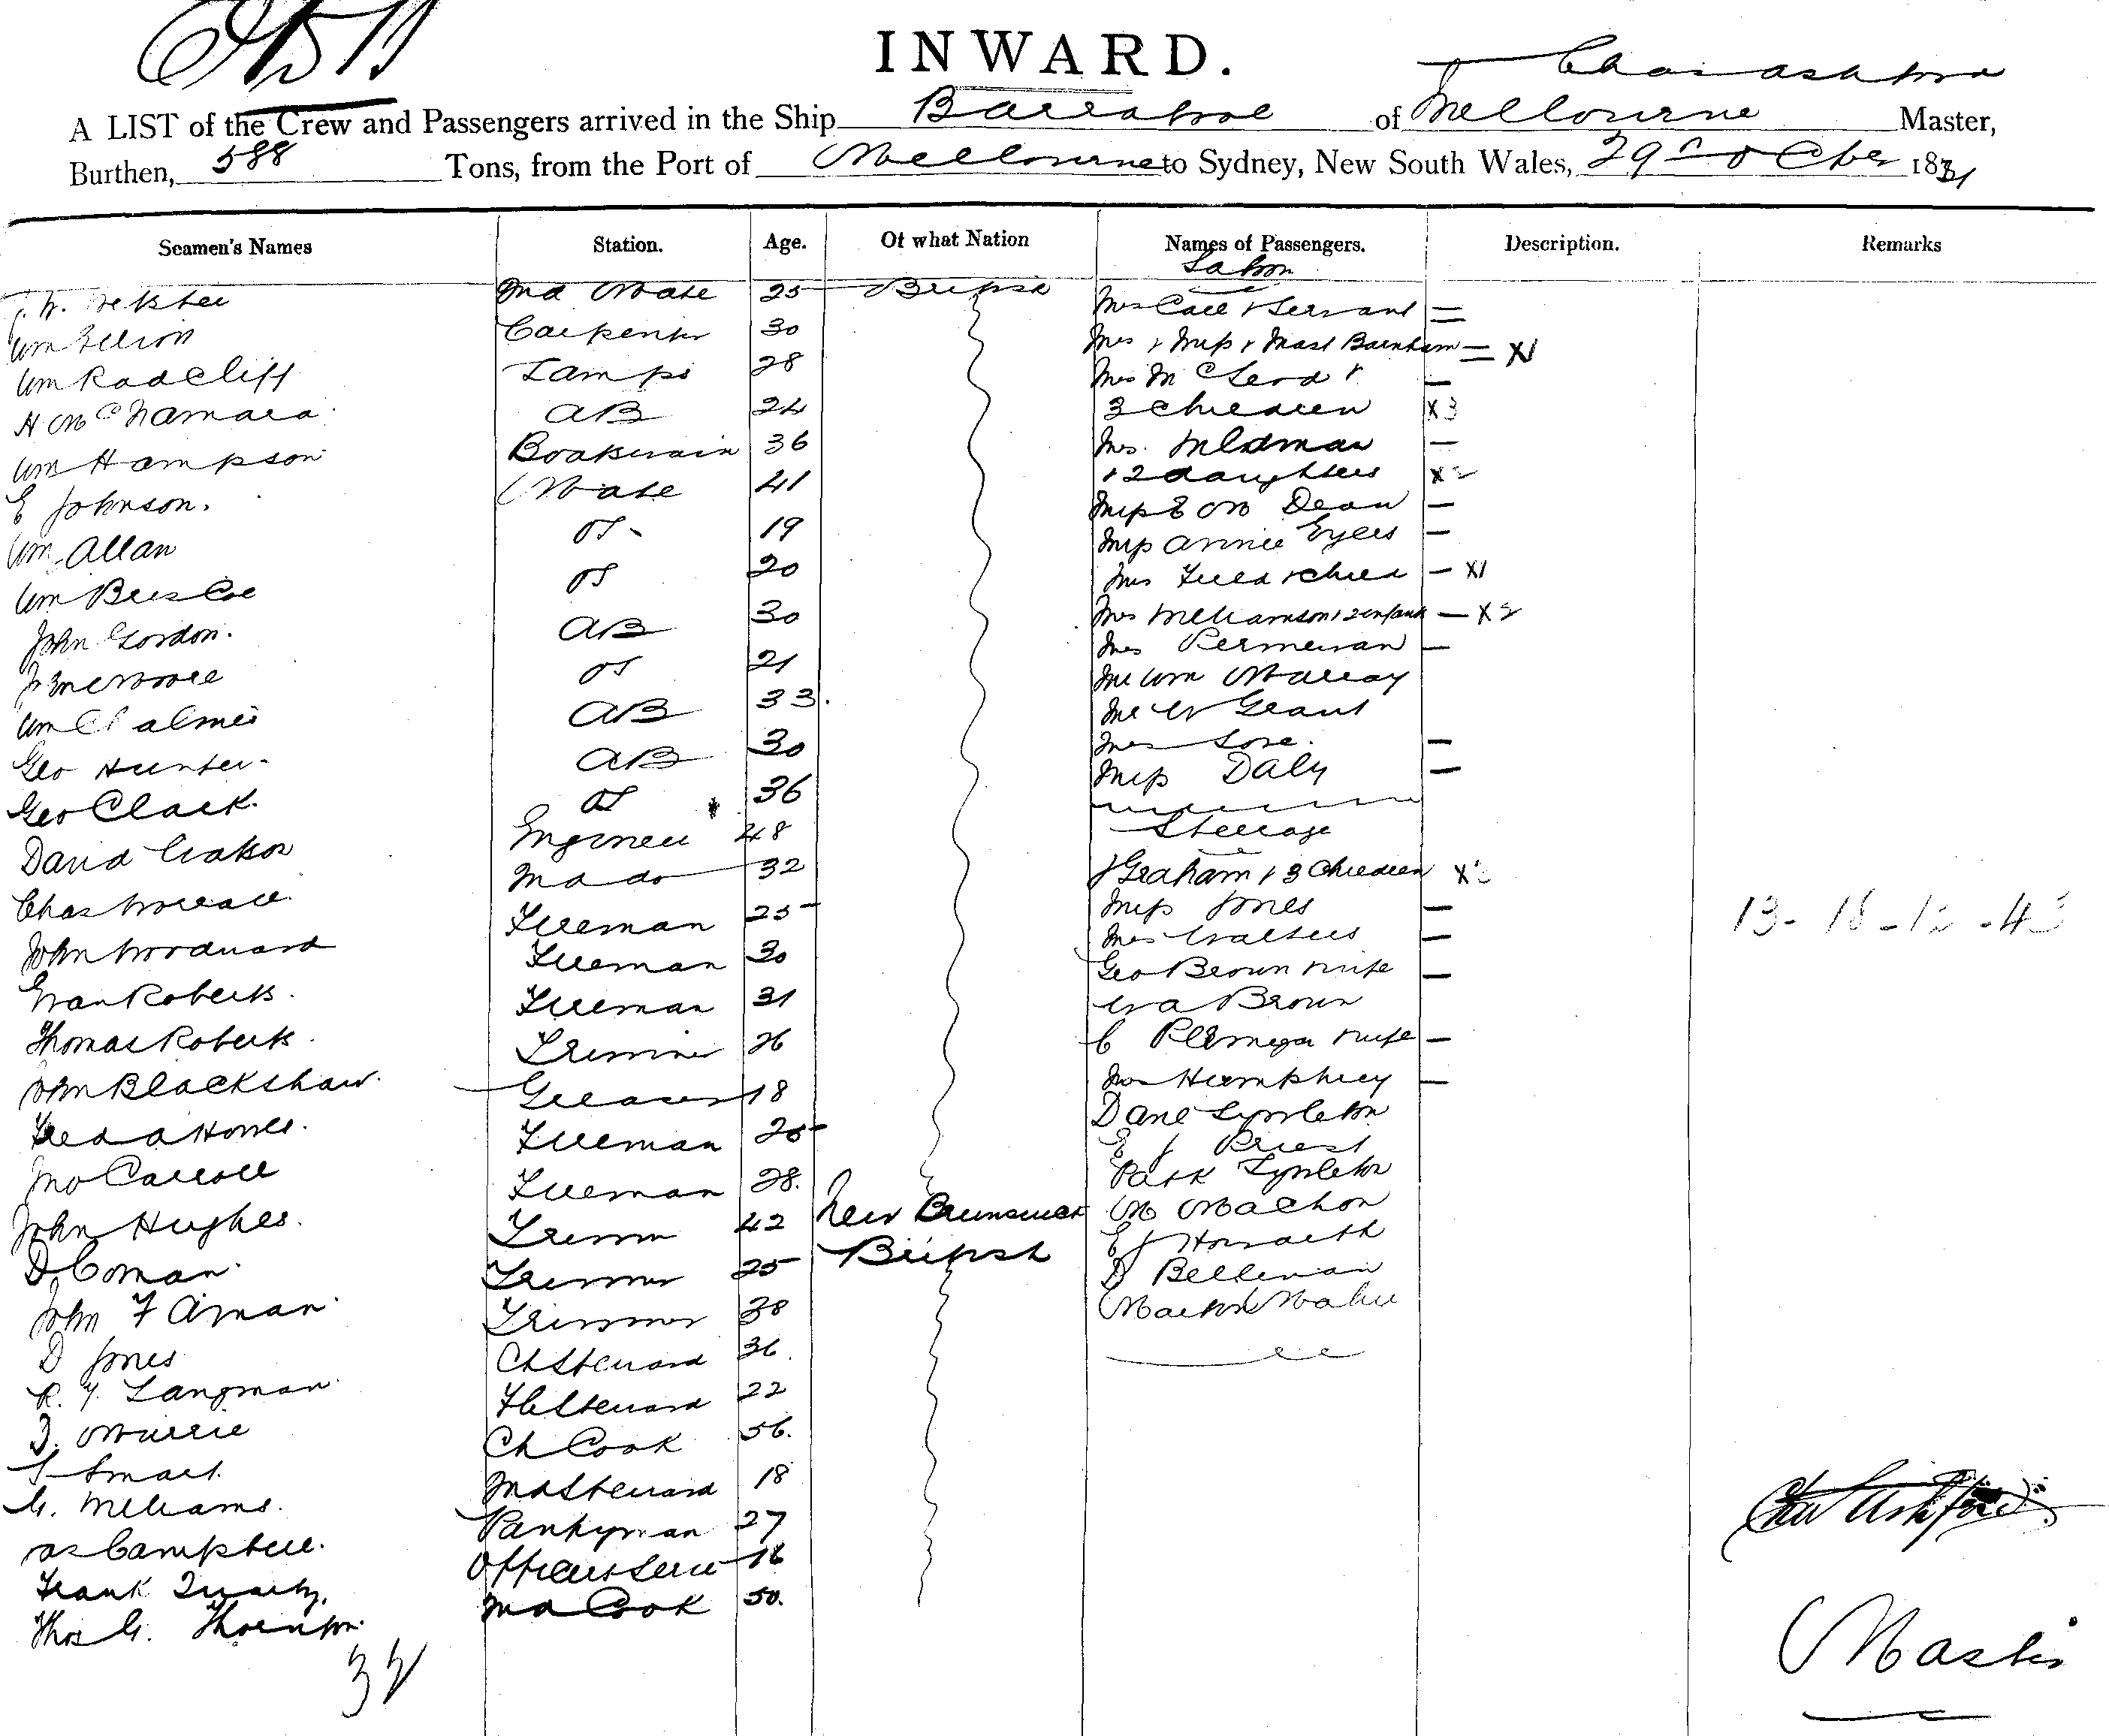 INWARD.
Chas Ashford
A LIST of the Crew and Passengers arrived in the Ship Barrabool of Melbourne Master,
Burthen, 588 Tons, from the Port of Melbourne to Sydney, New South Wales, 29th October 1881
Seamen's Names Station. Age. Of what Nation Names of Passengers. Description. Remarks
Saloon
2nd Mate 25 British Mrs Call & Servant
Wm Carpenter 30 Mrs & Miss & Mast Barnham
Wm Radcliff Lamps 28 Mrs McLeod &
H McNamara AB 24 3 Children X3
Wm Hampson Boatswain 36 Mrs Wildman
E Johnson. Mate 41 & 2 daughters X2
Wm Allan OS 19 Miss E M Dean
Wm Briscoe OS 20 Miss Annie Eyers
John Gordon. AB 30 Mrs Field & Child X1
OS 21 Mrs Williamson & 2 infants X2
Wm Chalmers AB 33. Mrs Permewan
Geo Hunter AB 30 Mr Wm Murray
Geo Clark. OS 36 Mr W Grant
David Watson Engineer 48 Mrs Love.
Chas Wallace 2nd do 32 Miss Daly
John Woodward Fireman 25 Steerage
Evan Roberts. Fireman 30 J Graham & 3 Children X3
Thomas Roberts. Fireman 31 Miss Jones
John Blackshaw. Trimmer 26 Mrs Walters
Greaser 18 Geo Brown & wife
Jno Carroll Fireman 25 Brown
John Hughes. Fireman 28. & wife
D Coman. Trimmer 42 New Brunswick Mrs Humphrey
John F Aman. Trimmer 25 British Singleton
D Jones Trimmer 38 E J Priest
R. Y. Langman Ch Steward 36 Patk Singleton
D. Murrie F C Steward 22 M Machon
Smart. Ch Cook 56. E J Howarth
G. Williams. 2nd Steward 18 D Belleman
Jas Campbell. Pantryman 27 Martin
Frank Officers Serv 16
Thos G. Thornton. 2nd Cook 50.
13 - 18 - 12 - 43
Chas Ashford
Master